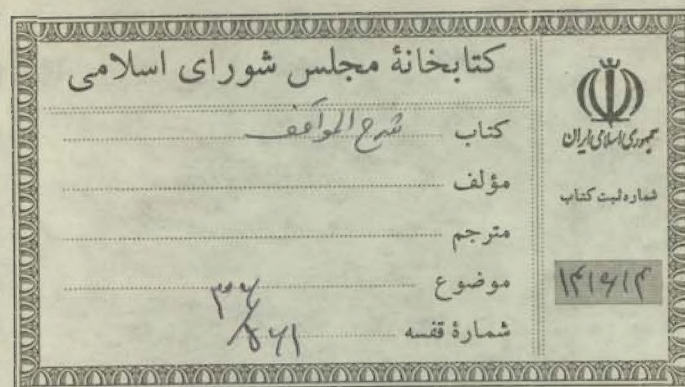 کتابخانهٔ مجلس شورای اسلامی
کتاب شرح المواقف
مؤلف
مترجم
موضوع
شمارهٔ قفسه
جمهوری اسلامی ایران
شماره ثبت کتاب